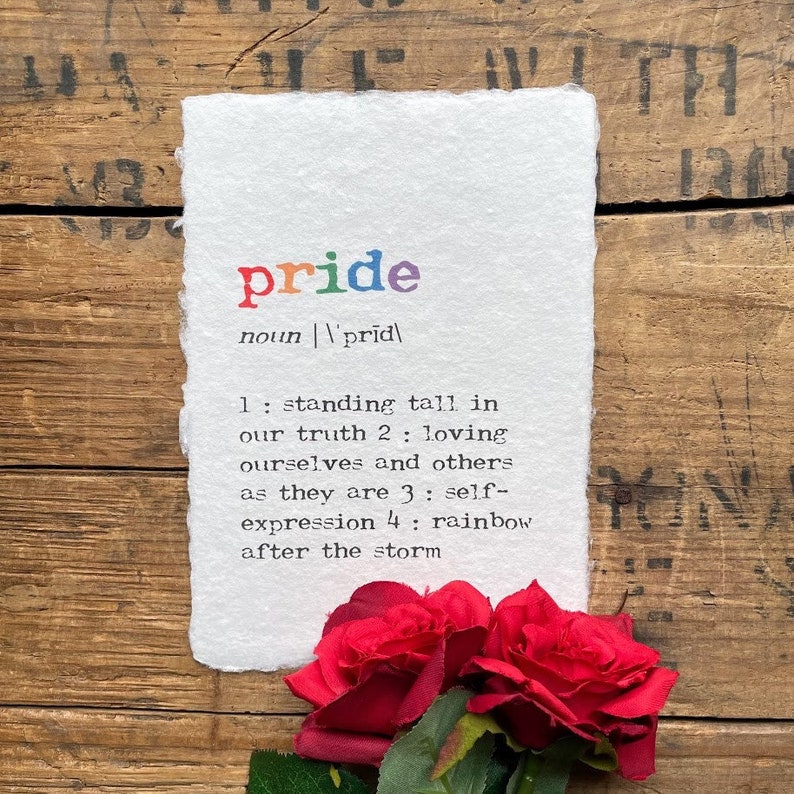 WITH
pride
noun | \ˈprīd\
1 : standing tall in
our truth 2 : loving
ourselves and others
as they are 3 : self-
expression 4 : rainbow
after the storm